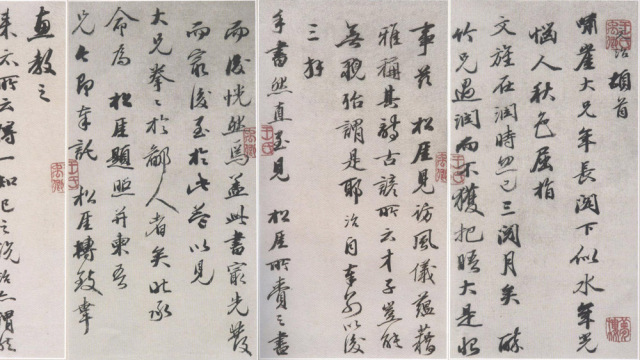 治頓首
嘯崖大兄年長閣下似水年光
惱人秋色屈指
文旌在潤時忽已三閱月矣
竹兄過潤而不獲把晤大是恨
事茲 松崖見訪風儀蘊藉
雅稱其詩古諺所云才子豈能
無貌殆謂是耶治自奉別以後
三奉
手書然直至見 松崖所賫之書
而後恍然焉蓋此書最先發
而最後至於此益以見
大兄拳拳於鄙人者矣比承
命為 松崖題照并柬吾
兄 即奉託 松崖轉致幸
教之
來示所云得一知己之說治亦謂